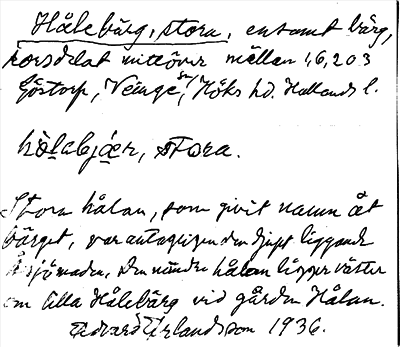 Hålebärg, stora, ensamt bärg,
korsdelat mittöver mellan 1,6,203
Göstorp, Veinge sn, Höks hd. Hallands l.
hòlabjær, stora.
Stora hålan, som givit namn åt
bärget, var antagligen den djupt liggande
sjömaden, den mindre hålan ligger väster
om lilla Hålebärg vid gården Hålan.
Edvard Erlandsson 1936.